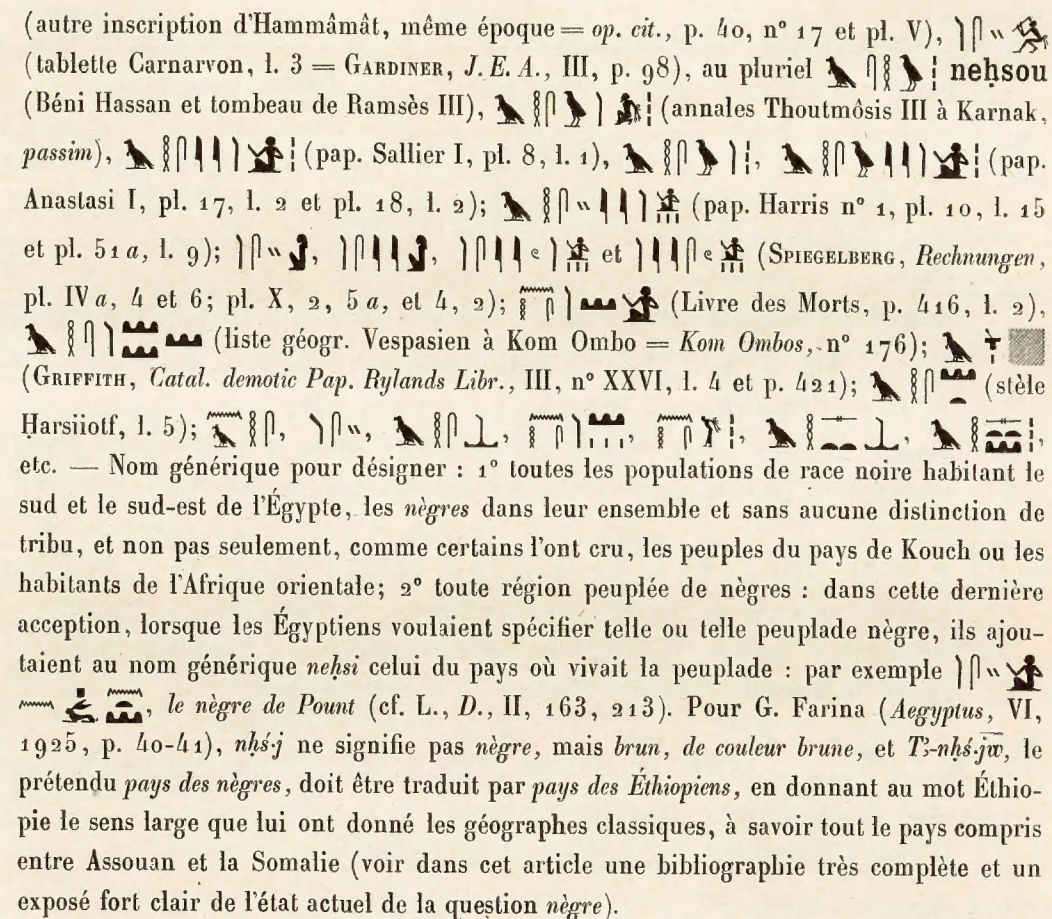 (autre inscription d'Hammâmât, même époque = op. cit., p. 40, n° 17 et pl. V),
(tablette Carnarvon, l. 3 = GARDINER, J. E. A., III, p. 98), au pluriel nehsou
(Béni Hassan et tombeau de Ramsès III), (annales Thoutmôsis III à Karnak,
passim), (pap. Sallier I, pl. 8, l. 1), , (pap.
Anastasi I, pl. 17, l. 2 et pl. 18, l. 2); (pap. Harris n° 1, pl. 10, l. 15
et pl. 51 a, l. 9); , , et (SPIEGELBERG, Rechnungen,
pl. IV a, 4 et 6; pl. X, 2, 5 a, et 4, 2); (Livre des Morts, p. 416, l. 2),
(liste géogr. Vespasien à Kom Ombo = Kom Ombos, n° 176);
(GRIFFITH, Catal. demotic Pap. Rylands Libr., III, n° XXVI, l. 4 et p. 421); (stèle
Ḥarsiiotf, l. 5); , , , , , , ,
etc. — Nom générique pour désigner : 1° toutes les populations de race noire habitant le
sud et le sud-est de l'Égypte, les nègres dans leur ensemble et sans aucune distinction de
tribu, et non pas seulement, comme certains l'ont cru, les peuples du pays de Kouch ou les
habitants de l'Afrique orientale; 2° toute région peuplée de nègres : dans cette dernière
acception, lorsque les Égyptiens voulaient spécifier telle ou telle peuplade nègre, ils ajou-
taient au nom générique neḥsi celui du pays où vivait la peuplade : par exemple
, le nègre de Pount (cf. L., D., II, 163, 213). Pour G. Farina (Aegyptus, VI,
1925, p. 40-41), nḥś·j ne signifie pas nègre, mais brun, de couleur brune, et T;-nḥś·jw, le
prétendu pays des nègres, doit être traduit par pays des Éthiopiens, en donnant au mot Éthio-
pie le sens large que lui ont donné les géographes classiques, à savoir tout le pays compris
entre Assouan et la Somalie (voir dans cet article une bibliographie très complète et un
exposé fort clair de l'état actuel de la question nègre).